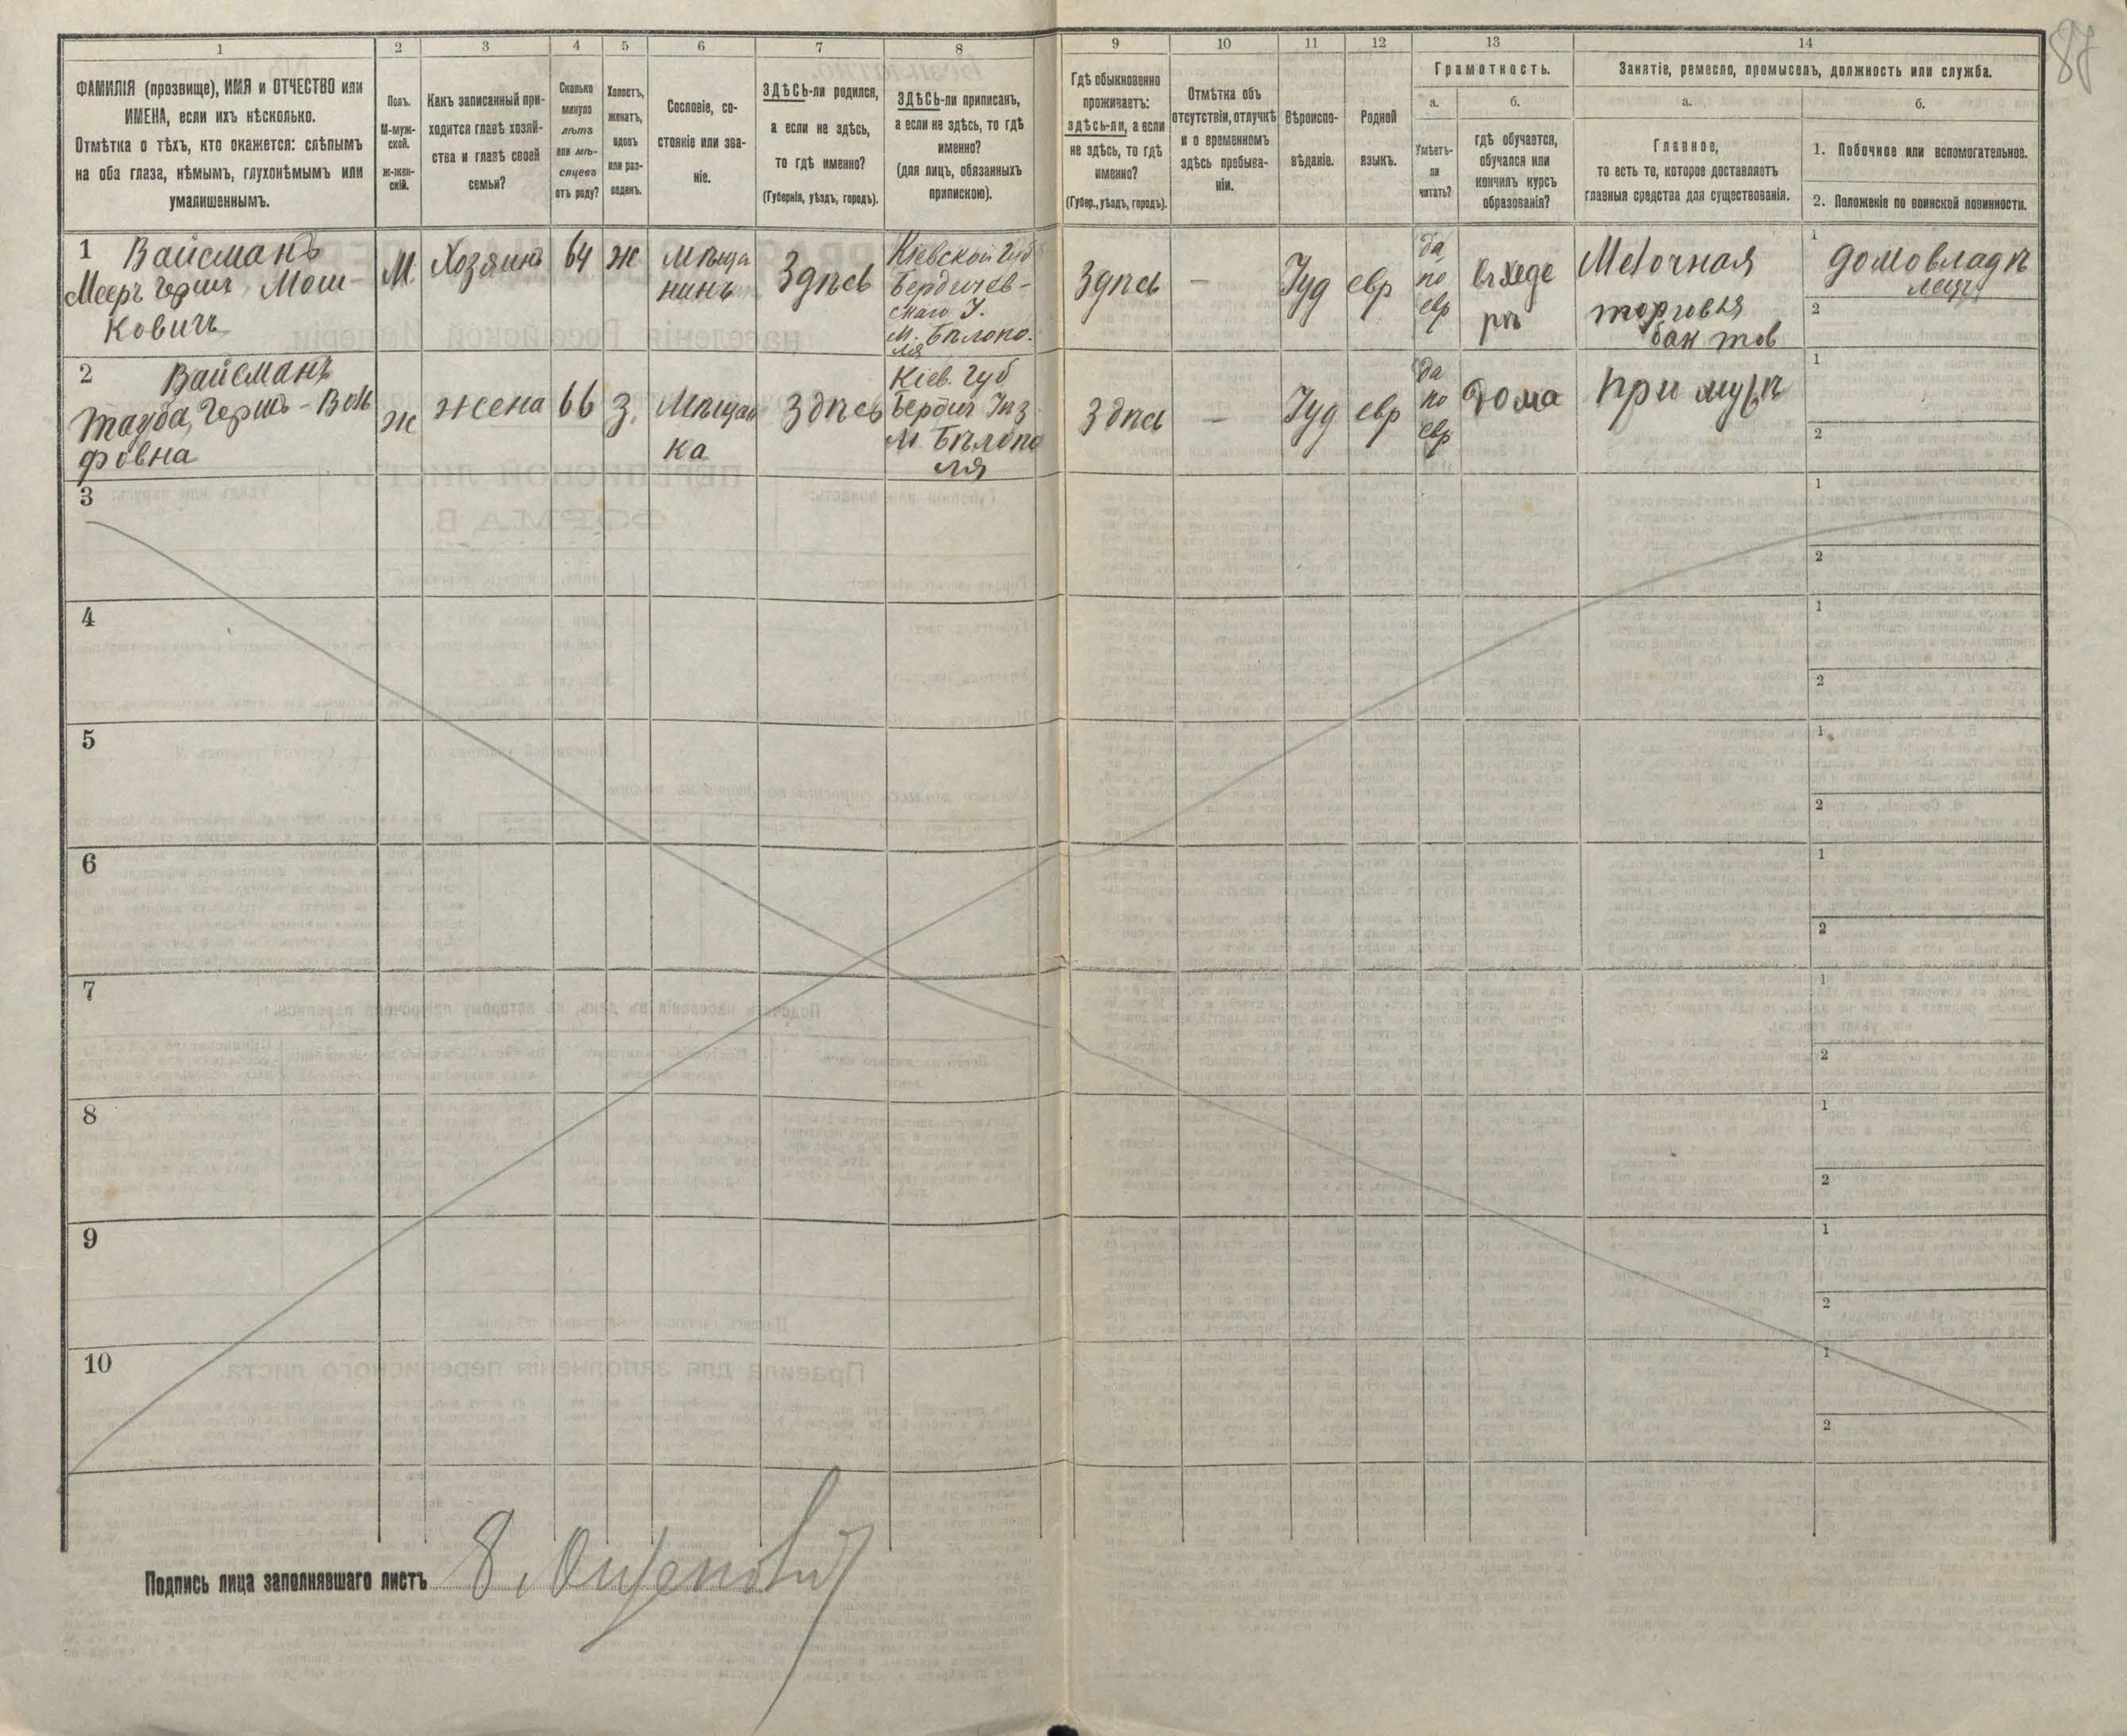 87
1
2
3
4
5
6
7
8
9
10
11
12
13
14
ФАМИЛІЯ (прозвище), ИМЯ и ОТЧЕСТВО или
ИМЕНА, если ихъ нѣсколько.
Отмѣтка о тѣхъ, кто окажется: слѣпымъ
на оба глаза, нѣмымъ, глухонѣмымъ или
умалишеннымъ.
Полъ.
М-муж-
ской.
Ж-жен-
скій.
Какъ записанный при-
ходится главѣ хозяй-
ства и главѣ своей
семьи?
Сколько
минуло
лѣтъ
или мѣ-
сяцевъ
отъ роду?
Холостъ,
женатъ,
вдовъ
или раз-
веденъ.
Сословіе, со-
стояніе или зва-
ніе.
ЗДѢСЬ-ли родился,
а если не здѣсь,
то гдѣ именно?
(Губернія, уѣздъ, городъ).
ЗДѢСЬ-ли приписанъ,
а если не здѣсь, то гдѣ
именно?
(для лицъ, обязанныхъ
припискою).
Гдѣ обыкновенно
проживаетъ:
здѣсь-ли, а если
не здѣсь, то гдѣ
именно?
(Губер., уѣздъ, городъ).
Отмѣтка объ
отсутствіи, отлучкѣ
и о временномъ
здѣсь пребыва-
ніи.
Вѣроиспо-
вѣданіе.
Родной
языкъ.
Грамотность.
а.
Умѣетъ-
ли
читать?
б.
гдѣ обучается,
обучался или
кончилъ курсъ
образованія?
Занятіе, ремесло, промыселъ, должность или служба.
а.
Главное,
то есть то, которое доставляетъ
главныя средства для существованія.
б.
1. Побочное или вспомогательное.
2. Положеніе по воинской повинности.
1 Вайсманъ
Мееръ Герш Мош-
ковичъ
М.
Хозяинъ
64
ж
Мѣща
нинъ
Здѣсь
Кіевской Губ
Бердичев-
скаго У.
М. Бѣлопо-
ля
Здѣсь
-
Іуд
евр
да
по
евр
в хеде
рѣ
Мелочная
торговля
бак тов
1
домовладѣ
лецъ
2
2 Вайсманъ
Тауба, Гершъ-Воль
фовна
ж
жена
66
З.
Мѣщан
ка
Здѣсь
Кіев. Губ
Бердич Уѣз
М. Бѣлопо
ля
Здѣсь
-
Іуд
евр
да
по
евр
Дома
при мужѣ
1
2
3
1
2
4
1
2
5
1
2
6
1
2
7
1
2
8
1
2
9
1
2
10
1
2
Подпись лица заполнявшаго листъ